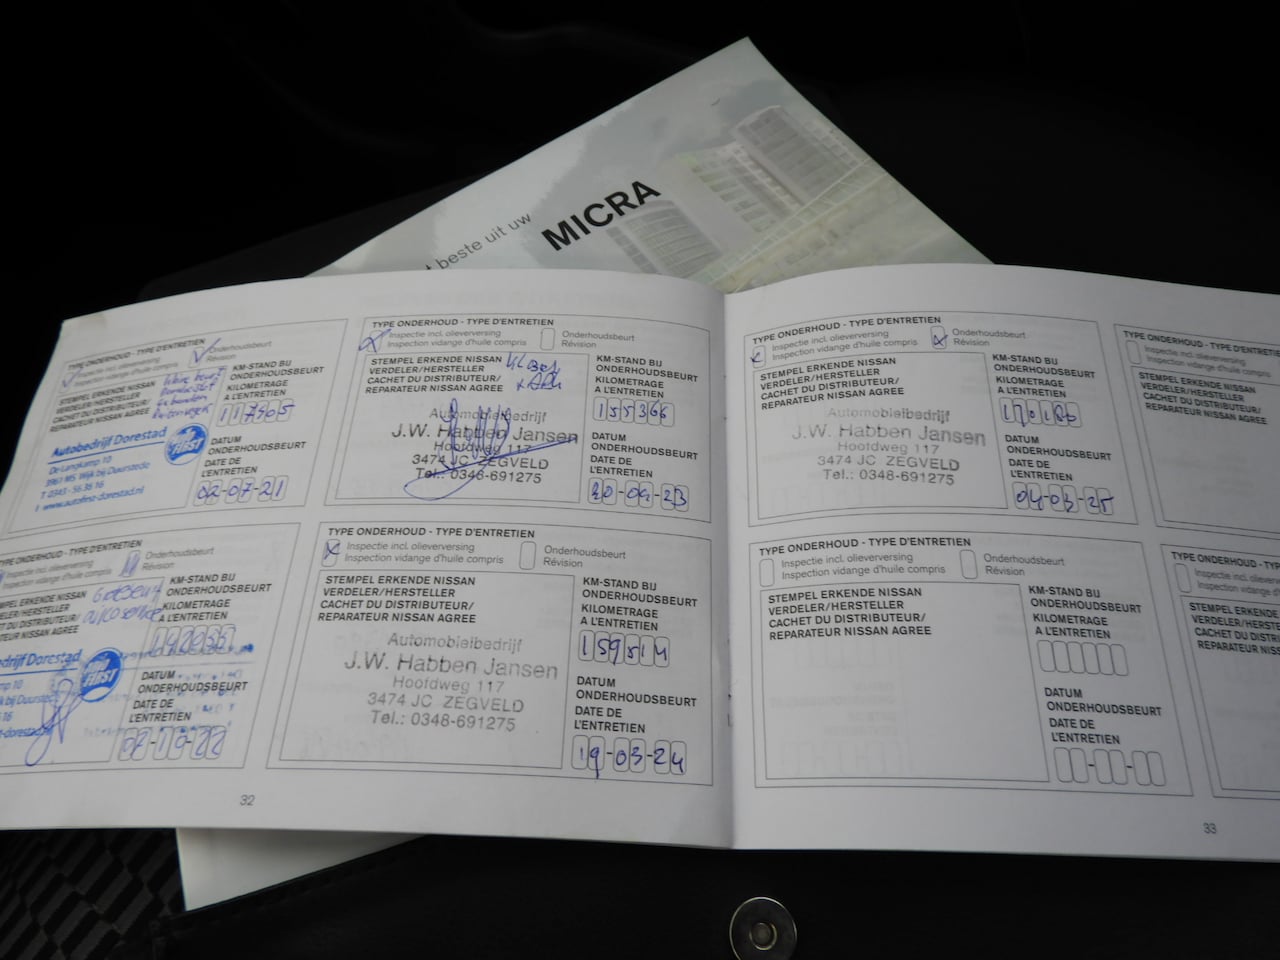 beste uit uw
MICRA
TYPE ONDERHOUD - TYPE D'ENTRETIEN
Inspectie incl. olieverversing
Inspection vidange d'huile compris
Onderhoudsbeurt
Révision
STEMPEL ERKENDE NISSAN
VERDELER/HERSTELLER
CACHET DU DISTRIBUTEUR/
REPARATEUR NISSAN AGREE
Autobedrijf Dorestad
De Langkamp 10
3961 MS Wijk bij Duurstede
T 0343 - 56 36 16
www.autofirst-dorestad.nl
FIRST
KM-STAND BIJ
ONDERHOUDSBEURT
KILOMETRAGE
A L'ENTRETIEN
117905
DATUM
ONDERHOUDSBEURT
DATE DE
L'ENTRETIEN
02-07-21
TYPE ONDERHOUD - TYPE D'ENTRETIEN
Inspectie incl. olieverversing
Inspection vidange d'huile compris
Onderhoudsbeurt
Révision
STEMPEL ERKENDE NISSAN
VERDELER/HERSTELLER
CACHET DU DISTRIBUTEUR/
REPARATEUR NISSAN AGREE
Automobielbedrijf
J.W. Habben Jansen
Hoofdweg 117
3474 JC ZEGVELD
Tel.: 0348-691275
KM-STAND BIJ
ONDERHOUDSBEURT
KILOMETRAGE
A L'ENTRETIEN
155366
DATUM
ONDERHOUDSBEURT
DATE DE
L'ENTRETIEN
TYPE ONDERHOUD - TYPE D'ENTRETIEN
Inspectie incl. olieverversing
Inspection vidange d'huile compris
Onderhoudsbeurt
Révision
STEMPEL ERKENDE NISSAN
VERDELER/HERSTELLER
CACHET DU DISTRIBUTEUR/
REPARATEUR NISSAN AGREE
Automobielbedrijf
J.W. Habben Jansen
Hoofdweg 117
3474 JC ZEGVELD
Tel.: 0348-691275
KM-STAND BIJ
ONDERHOUDSBEURT
KILOMETRAGE
A L'ENTRETIEN
DATUM
ONDERHOUDSBEURT
DATE DE
L'ENTRETIEN
04-03-25
TYPE ONDERHOUD - TYPE D'ENTRETIEN
STEMPEL ERKENDE
VERDELER/HERSTELLER
CACHET DU DISTRIBUTEUR/
REPARATEUR NISSAN AGREE
TYPE ONDERHOUD - TYPE D'ENTRETIEN
Inspectie incl. olieverversing
Inspection vidange d'huile compris
Onderhoudsbeurt
Révision
KM-STAND BIJ
ONDERHOUDSBEURT
KILOMETRAGE
A L'ENTRETIEN
DATUM
ONDERHOUDSBEURT
DATE DE
L'ENTRETIEN
07-10-22
TYPE ONDERHOUD - TYPE D'ENTRETIEN
Inspectie incl. olieverversing
Inspection vidange d'huile compris
Onderhoudsbeurt
Révision
STEMPEL ERKENDE NISSAN
VERDELER/HERSTELLER
CACHET DU DISTRIBUTEUR/
REPARATEUR NISSAN AGREE
Automobielbedrijf
J.W. Habben Jansen
Hoofdweg 117
3474 JC ZEGVELD
Tel.: 0348-691275
KM-STAND BIJ
ONDERHOUDSBEURT
KILOMETRAGE
A L'ENTRETIEN
159514
DATUM
ONDERHOUDSBEURT
DATE DE
L'ENTRETIEN
19-03-24
TYPE ONDERHOUD - TYPE D'ENTRETIEN
Inspectie incl. olieverversing
Inspection vidange d'huile compris
Onderhoudsbeurt
Révision
STEMPEL ERKENDE NISSAN
VERDELER/HERSTELLER
CACHET DU DISTRIBUTEUR/
REPARATEUR NISSAN AGREE
KM-STAND BIJ
ONDERHOUDSBEURT
KILOMETRAGE
A L'ENTRETIEN
DATUM
ONDERHOUDSBEURT
DATE DE
L'ENTRETIEN
TYPE ONDERHOUD
Inspectie incl.
Inspection
STEMPEL ERKENDE
VERDELER/HERSTELLER
CACHET DU
REPARATEUR
32
33